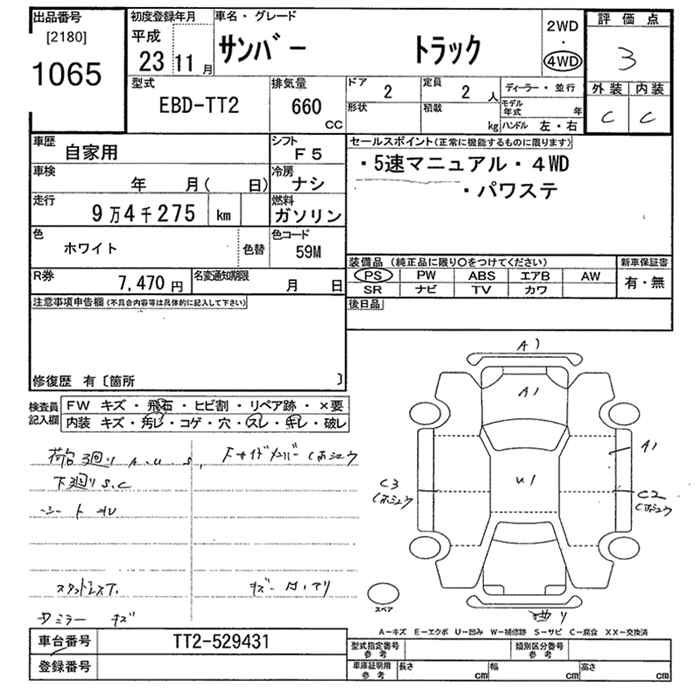 出品番号 初度登録年月 車名・グレード 評価点
[2180] 平成
1065 23 11月 サンバー トラック 2WD・4WD 3
型式 排気量 ドア 定員 ディーラー・並行 外装 内装
EBD-TT2 660 CC 2 2人 モデル年式 年 C C
形状 積載 kg ハンドル 左・右
車歴 自家用 シフト F5 セールスポイント(正常に機能するものに限ります)
車検 年 月( 日) 冷房 ナシ ・5速マニュアル・4WD
走行 9万4千275 km 燃料 ガソリン ・パワステ
色 ホワイト 色替 色コード 59M
装備品 (純正品に限り○をつけてください) 新車保証書
PS PW ABS エアB AW 有・無
SR ナビ TV カワ
R券 7,470円 名変通知期限 月 日
後日品
注意事項申告欄(不具合内容等は具体的に記入して下さい)
修復歴 有〔箇所 〕
検査員記入欄 FW キズ・飛石・ヒビ割・リペア跡・×要
内装 キズ・汚レ・コゲ・穴・スレ・キレ・破レ
荷台3廻り A.U.S.
下廻りS.C
A1
A1
A1
U1
C3
C2
スペア
A-キズ E-エクボ U-凹み W-補修跡 S-サビ C-腐食 XX-交換済
車台番号 TT2-529431 型式指定番号 参考 類別区分番号 参考
登録番号 車庫証明用 参考 長さ cm 幅 cm 高さ cm